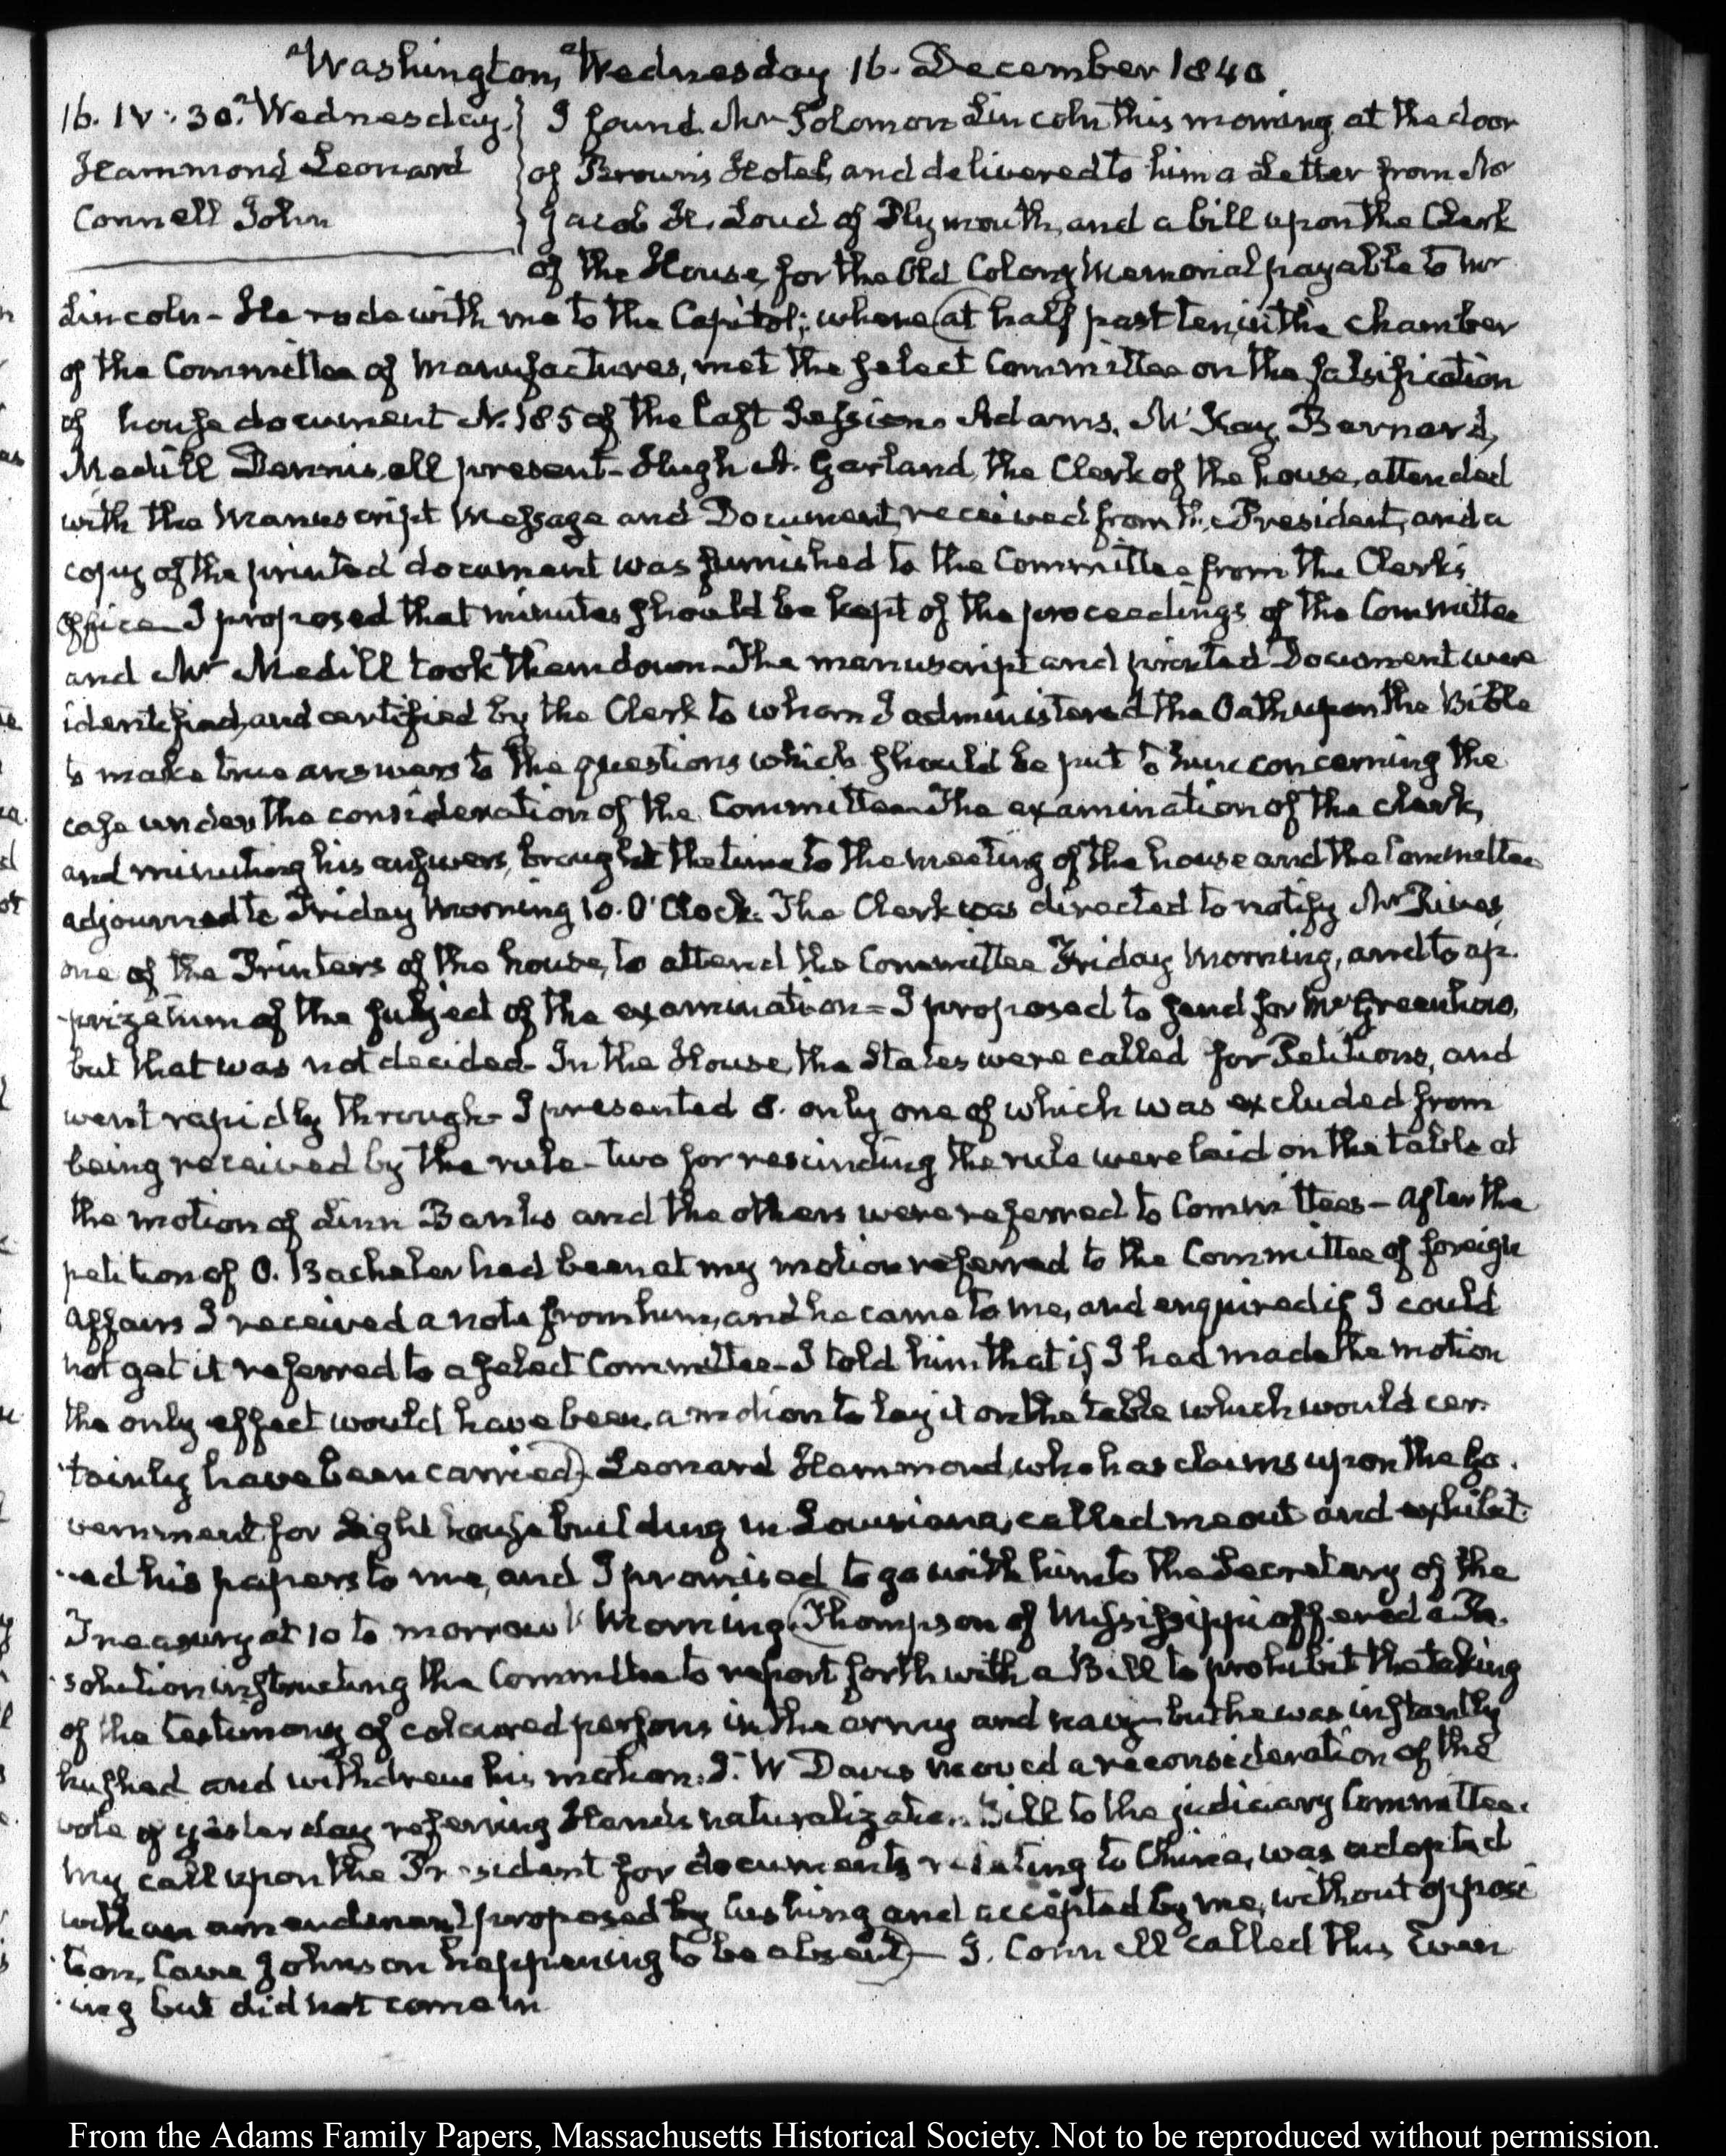 Washington, Wednesday 16. December 1840.
16. IV: 30. Wednesday.
Hammond Leonard
Connell John
I found Mr Solomon Lincoln this morning at the door
of Brown's Hotel, and delivered to him a Letter from Mr
Jacob H. Loud of Plymouth, and a bill upon the Clerk
of the House, for the Old Colony Memorial payable to Mr
Lincoln- He rode with me to the Capitol; where (at half past ten, in the chamber
of the Committee of Manufactures, met the select Committee on the falsification
of house document N. 185 of the last Session. Adams, McKay, Barnard,
Medill Dennis, all present- Hugh A. Garland, the Clerk of the house, attended
with the Manuscript Message and Document, received from the President, and a
copy of the printed document was furnished to the Committee from the Clerk's
Office- I proposed that minutes should be kept of the proceedings of the Committee
and Mr Medill took them down- The manuscript and printed Document were
identified, and certified by the Clerk to whom I administered the Oath upon the Bible
to make true answers to the questions which should be put to him concerning the
case under the consideration of the Committee- The examination of the clerk,
and minuting his answers, brought the time to the meeting of the house and the Committee
adjourned to Friday Morning 10. O'Clock. The Clerk was directed to notify Mr Rives,
one of the Printers of the house, to attend the Committee Friday Morning, and to ap-
-prize him of the subject of the examination- I proposed to send for Mr Greenhow,
but that was not decided- In the House, the States were called for Petitions, and
went rapidly through- I presented 8. only one of which was excluded from
being received by the rule- two for rescinding the rule were laid on the table at
the motion of Linn Banks and the others were referred to Committees- After the
petition of O. Bacheler had been at my motion referred to the Committee of foreign
Affairs I received a note from him, and he came to me, and enquired if I could
not get it referred to a select Committee- I told him that if I had made the motion
the only effect would have been a motion to lay it on the table which would cer-
-tainly have been carried) Leonard Hammond, who has claims upon the Go-
vernment for Light house building in Louisiana, called me out and exhibit-
-ed his papers to me, and I promised to go with him to the Secretary of the
Treasury at 10 to morrow Morning. (Thompson of Mississippi offered a Re-
-solution instructing the Committee to report forthwith a Bill to prohibit the taking
of the testimony of coloured persons in the army and navy- but he was instantly
hushed and withdrew his motion. J. W Davis moved a reconsideration of the
vote of yesterday referring Hand's naturalization Bill to the judiciary Committee.
My call upon the President for documents relating to China, was adopted
with an amendment proposed by Cushing and accepted by me, without opposi-
-tion, Cave Johnson happening to be absent)- J. Connell called this Even-
-ing but did not come in
From the Adams Family Papers, Massachusetts Historical Society. Not to be reproduced without permission.